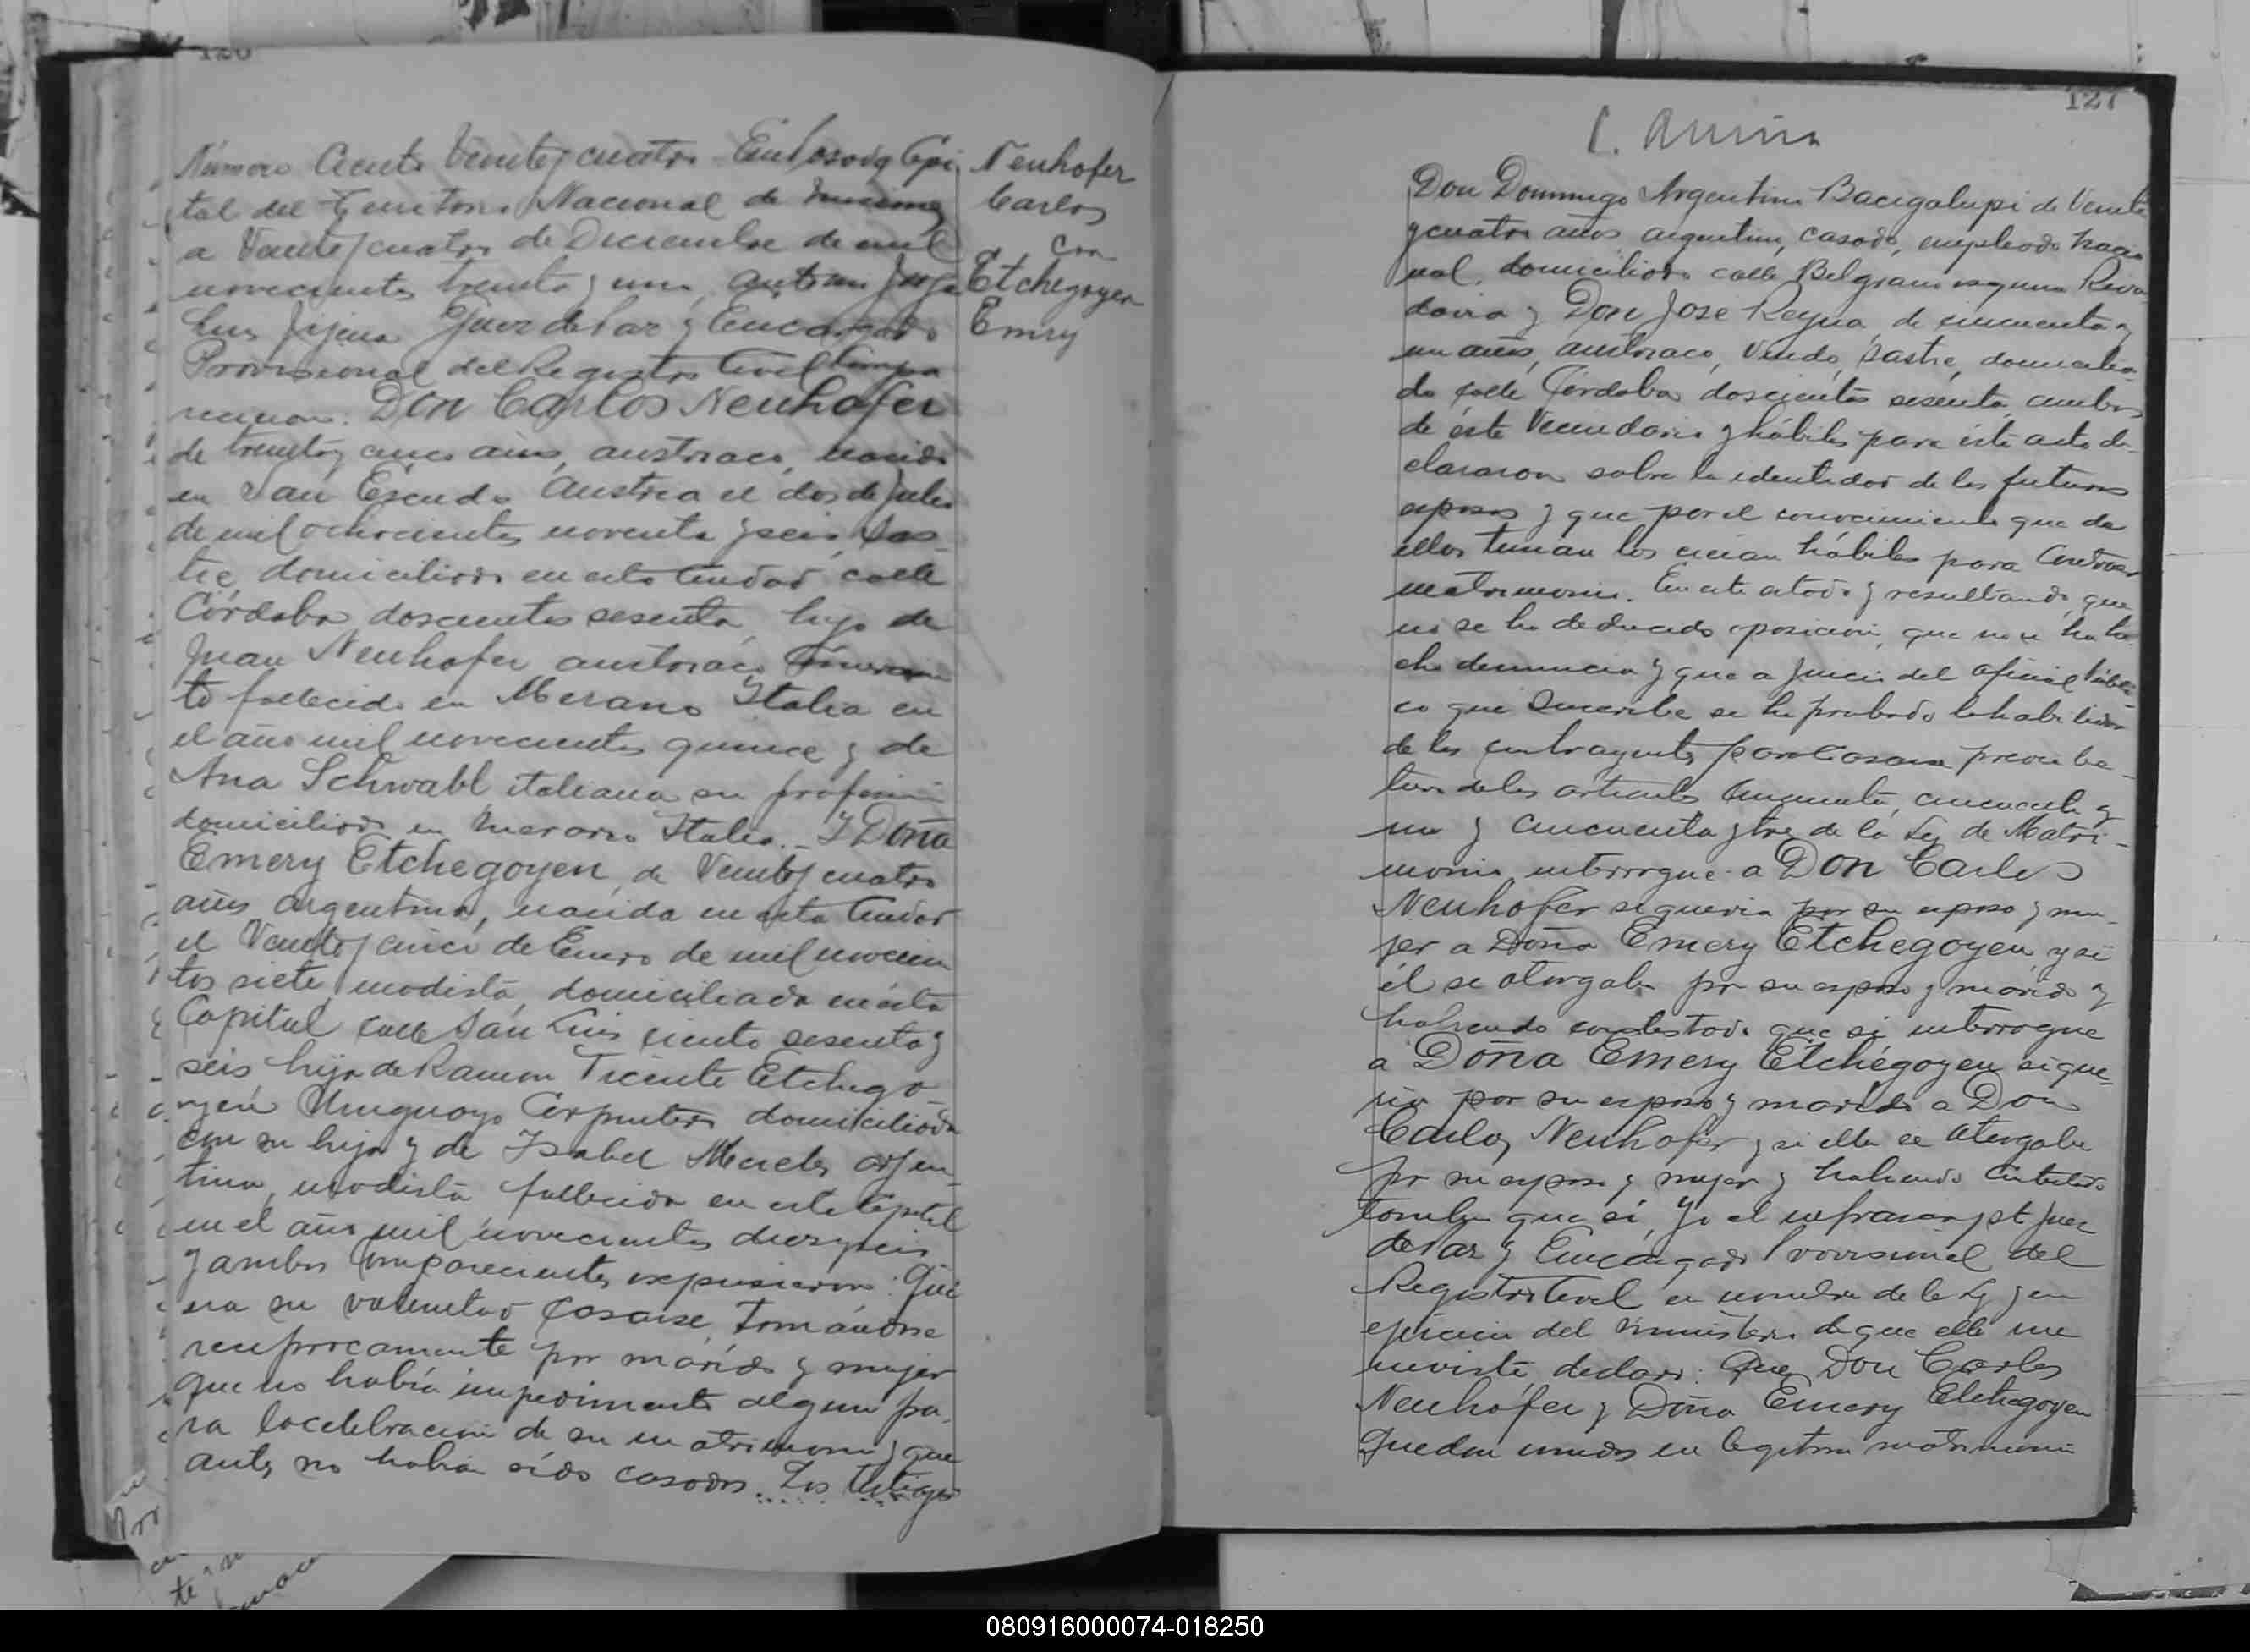 126
Número Ciento Veinte y cuatro En Posadas Capi
tal del Territorio Nacional de Misiones
a Veinte y cuatro de Diciembre de mil
novecientos treinta y uno, Jorge
Luis Juez de Paz y Encargado
Provisional del Registro Civil Compa
recieron: Don Carlos Neuhofer
de treinta y cinco años, austriaco, nacido
en San Austria el dos de Julio
de mil ochocientos noventa y seis, Sas
tre, domiciliado en esta Ciudad calle
Córdoba doscientos sesenta, hijo de
Juan Neuhofer austriaco
fallecido en Merano Italia en
el año mil novecientos quince y de
Ana Schwabl italiana su profesión
domiciliada en Merano Italia.- Y Doña
Emery Etchegoyen, de Veinte y cuatro
años argentina, nacida en esta Ciudad
el Veinte y cinco de Enero de mil novecien
tos siete, modista, domiciliada en esta
Capital calle San Luis ciento sesenta y
seis, hija de Ramon Vicente Etchego-
yen Uruguayo Carpintero domiciliado
con su hija y de Isabel Mereles argen-
tina, modista fallecida en esta Capital
en el año mil novecientos diez y seis
y ambos Comparecientes expusieron: Que
era su voluntad Casarse, tomándose
reciprocamente por marido y mujer
que no había impedimento alguno pa-
ra la celebración de su matrimonio y que
antes no habian sido casados. Los testigos
Neuhofer
Carlos
con
Etchegoyen
Emery
127
Don Domingo Argentino Bacigalupi de Veinte
y cuatro años, argentino, casado, empleado nacio
nal, domiciliado calle Belgrano esquina Riva-
davia y Don José Reyna, de cincuenta y
un años, austriaco, Viudo, sastre, domicilia-
do calle Córdoba doscientos sesenta, ambos
de éste Vecindario y hábiles para éste acto de-
clararon sobre la identidad de los futuros
esposos y que por el conocimiento que de
ellos tenian los creian hábiles para Contraer
matrimonio. En este estado y resultando, que
no se ha deducido oposición, que no se ha he
cho denuncia y que a juicio del oficial públi-
co que suscribe se ha probado la habilidad
de los contrayentes para Casarse previa lec-
tura de los articulos Cincuenta, cincuenta y
uno y cincuenta y tres de la Ley de Matri-
monio, interrogué a Don Carlos
Neuhofer si queria por su esposa y mu-
jer a Doña Emery Etchegoyen, y si
él se otorgaba por su esposo y marido y
habiendo contestado que si interrogue
a Doña Emery Etchegoyen si que-
ria por su esposo y marido a Don
Carlos Neuhofer y si ella se otorgaba
por su esposa y mujer y habiendo Contestado
tambien que sí, Yo el infrascripto Juez
de Paz y Encargado Provisional del
Registro Civil en nombre de la Ley y en
ejercicio del ministerio de que ella me
inviste, declaro: Que Don Carlos
Neuhofer y Doña Emery Etchegoyen
quedan unidos en legitimo matrimonio
080916000074-018250